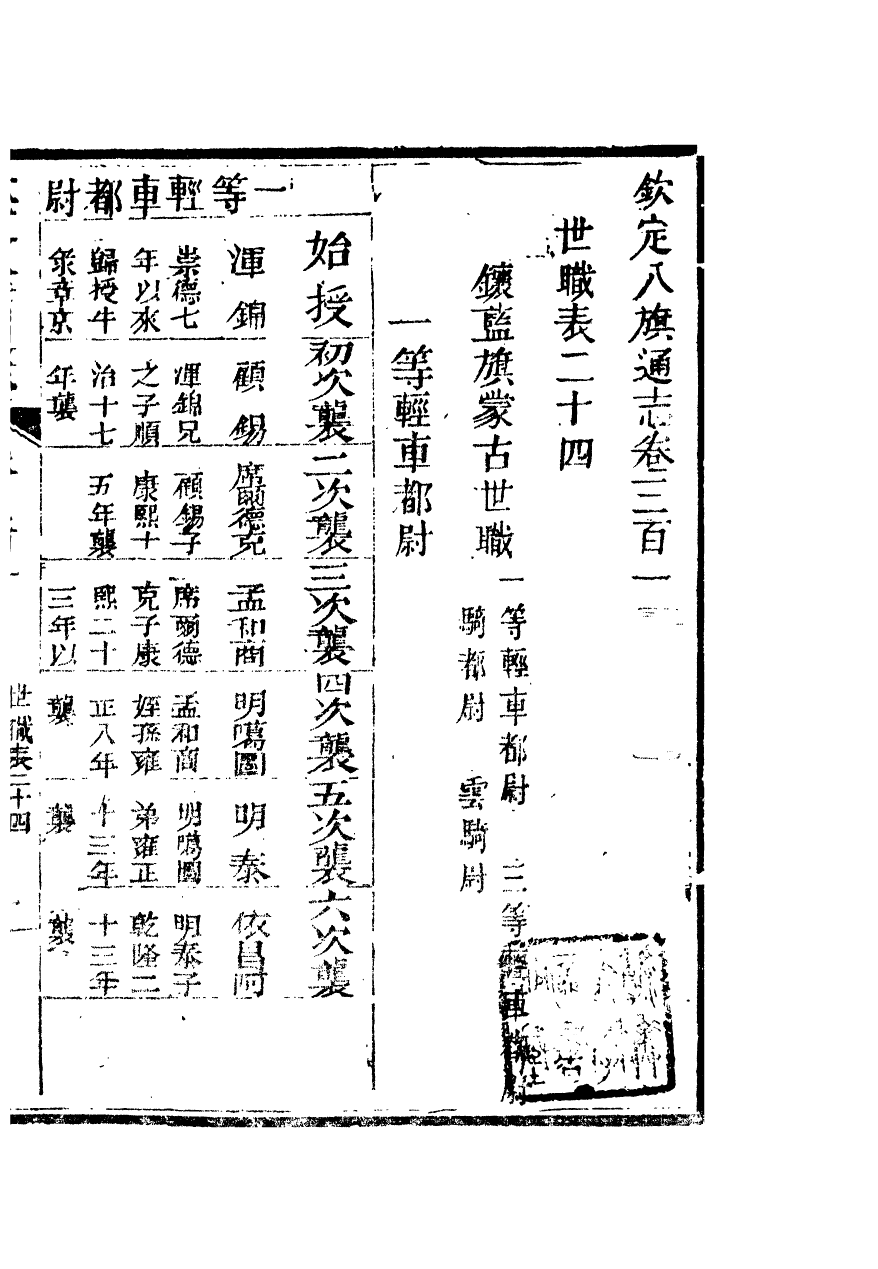 欽定八旗通志卷三百一
世職表二十四
鑲藍旗蒙古世職
一等輕車都尉 三等輕車都尉
騎都尉 雲騎尉
一等輕車都尉
一等輕車都尉
始授
渾錦
崇德七
年以來
歸授牛
彔章京
初次襲
顧錫
渾錦兄
之子順
治十七
年襲
二次襲
席爾德克
顧錫子
康熙十
五年襲
三次襲
孟和商
席爾德
克子康
熙二十
三年以
四次襲
明噶圖
孟和商
姪孫雍
正八年
襲
五次襲
明泰
明噶圖
弟雍正
十三年
襲
六次襲
依昌阿
明泰子
乾隆二
十三年
襲
世職表二十四